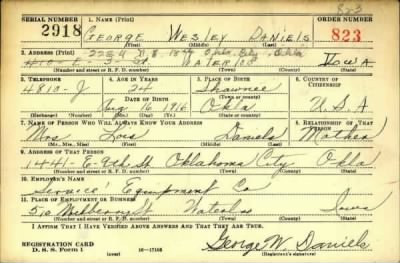 823
SERIAL NUMBER 1. NAME (Print) ORDER NUMBER
2918 GEORGE WESLEY DANIELS 823
(First) (Middle) (Last)
2. ADDRESS (Print)
2254 N.E. 18th Okla. City, Okla
410 - E - 3 St. WATERLOO IOWA
(Number and street or R. F. D. number) (Town) (County) (State)
3. TELEPHONE 4. AGE IN YEARS 5. PLACE OF BIRTH 6. COUNTRY OF CITIZENSHIP
4810-J 24 Shawnee
DATE OF BIRTH
Aug 16 1916 Okla U.S.A
(Exchange) (Number) (Mo.) (Day) (Yr.) (Town or county) (State or country)
7. NAME OF PERSON WHO WILL ALWAYS KNOW YOUR ADDRESS 8. RELATIONSHIP OF THAT PERSON
Mrs Lois Daniels Mother
(Mr., Mrs., Miss) (First) (Middle) (Last)
9. ADDRESS OF THAT PERSON
1441-E-9th St Oklahoma City Okla
(Number and street or R. F. D. number) (Town) (County) (State)
10. EMPLOYER'S NAME
Service Equipment Co
11. PLACE OF EMPLOYMENT OR BUSINESS
510 Mulberry St Waterloo Iowa
(Number and street or R. F. D. number) (Town) (County) (State)
I AFFIRM THAT I HAVE VERIFIED ABOVE ANSWERS AND THAT THEY ARE TRUE.
REGISTRATION CARD George W. Daniels
D. S. S. FORM 1 (over) (Registrant's signature)